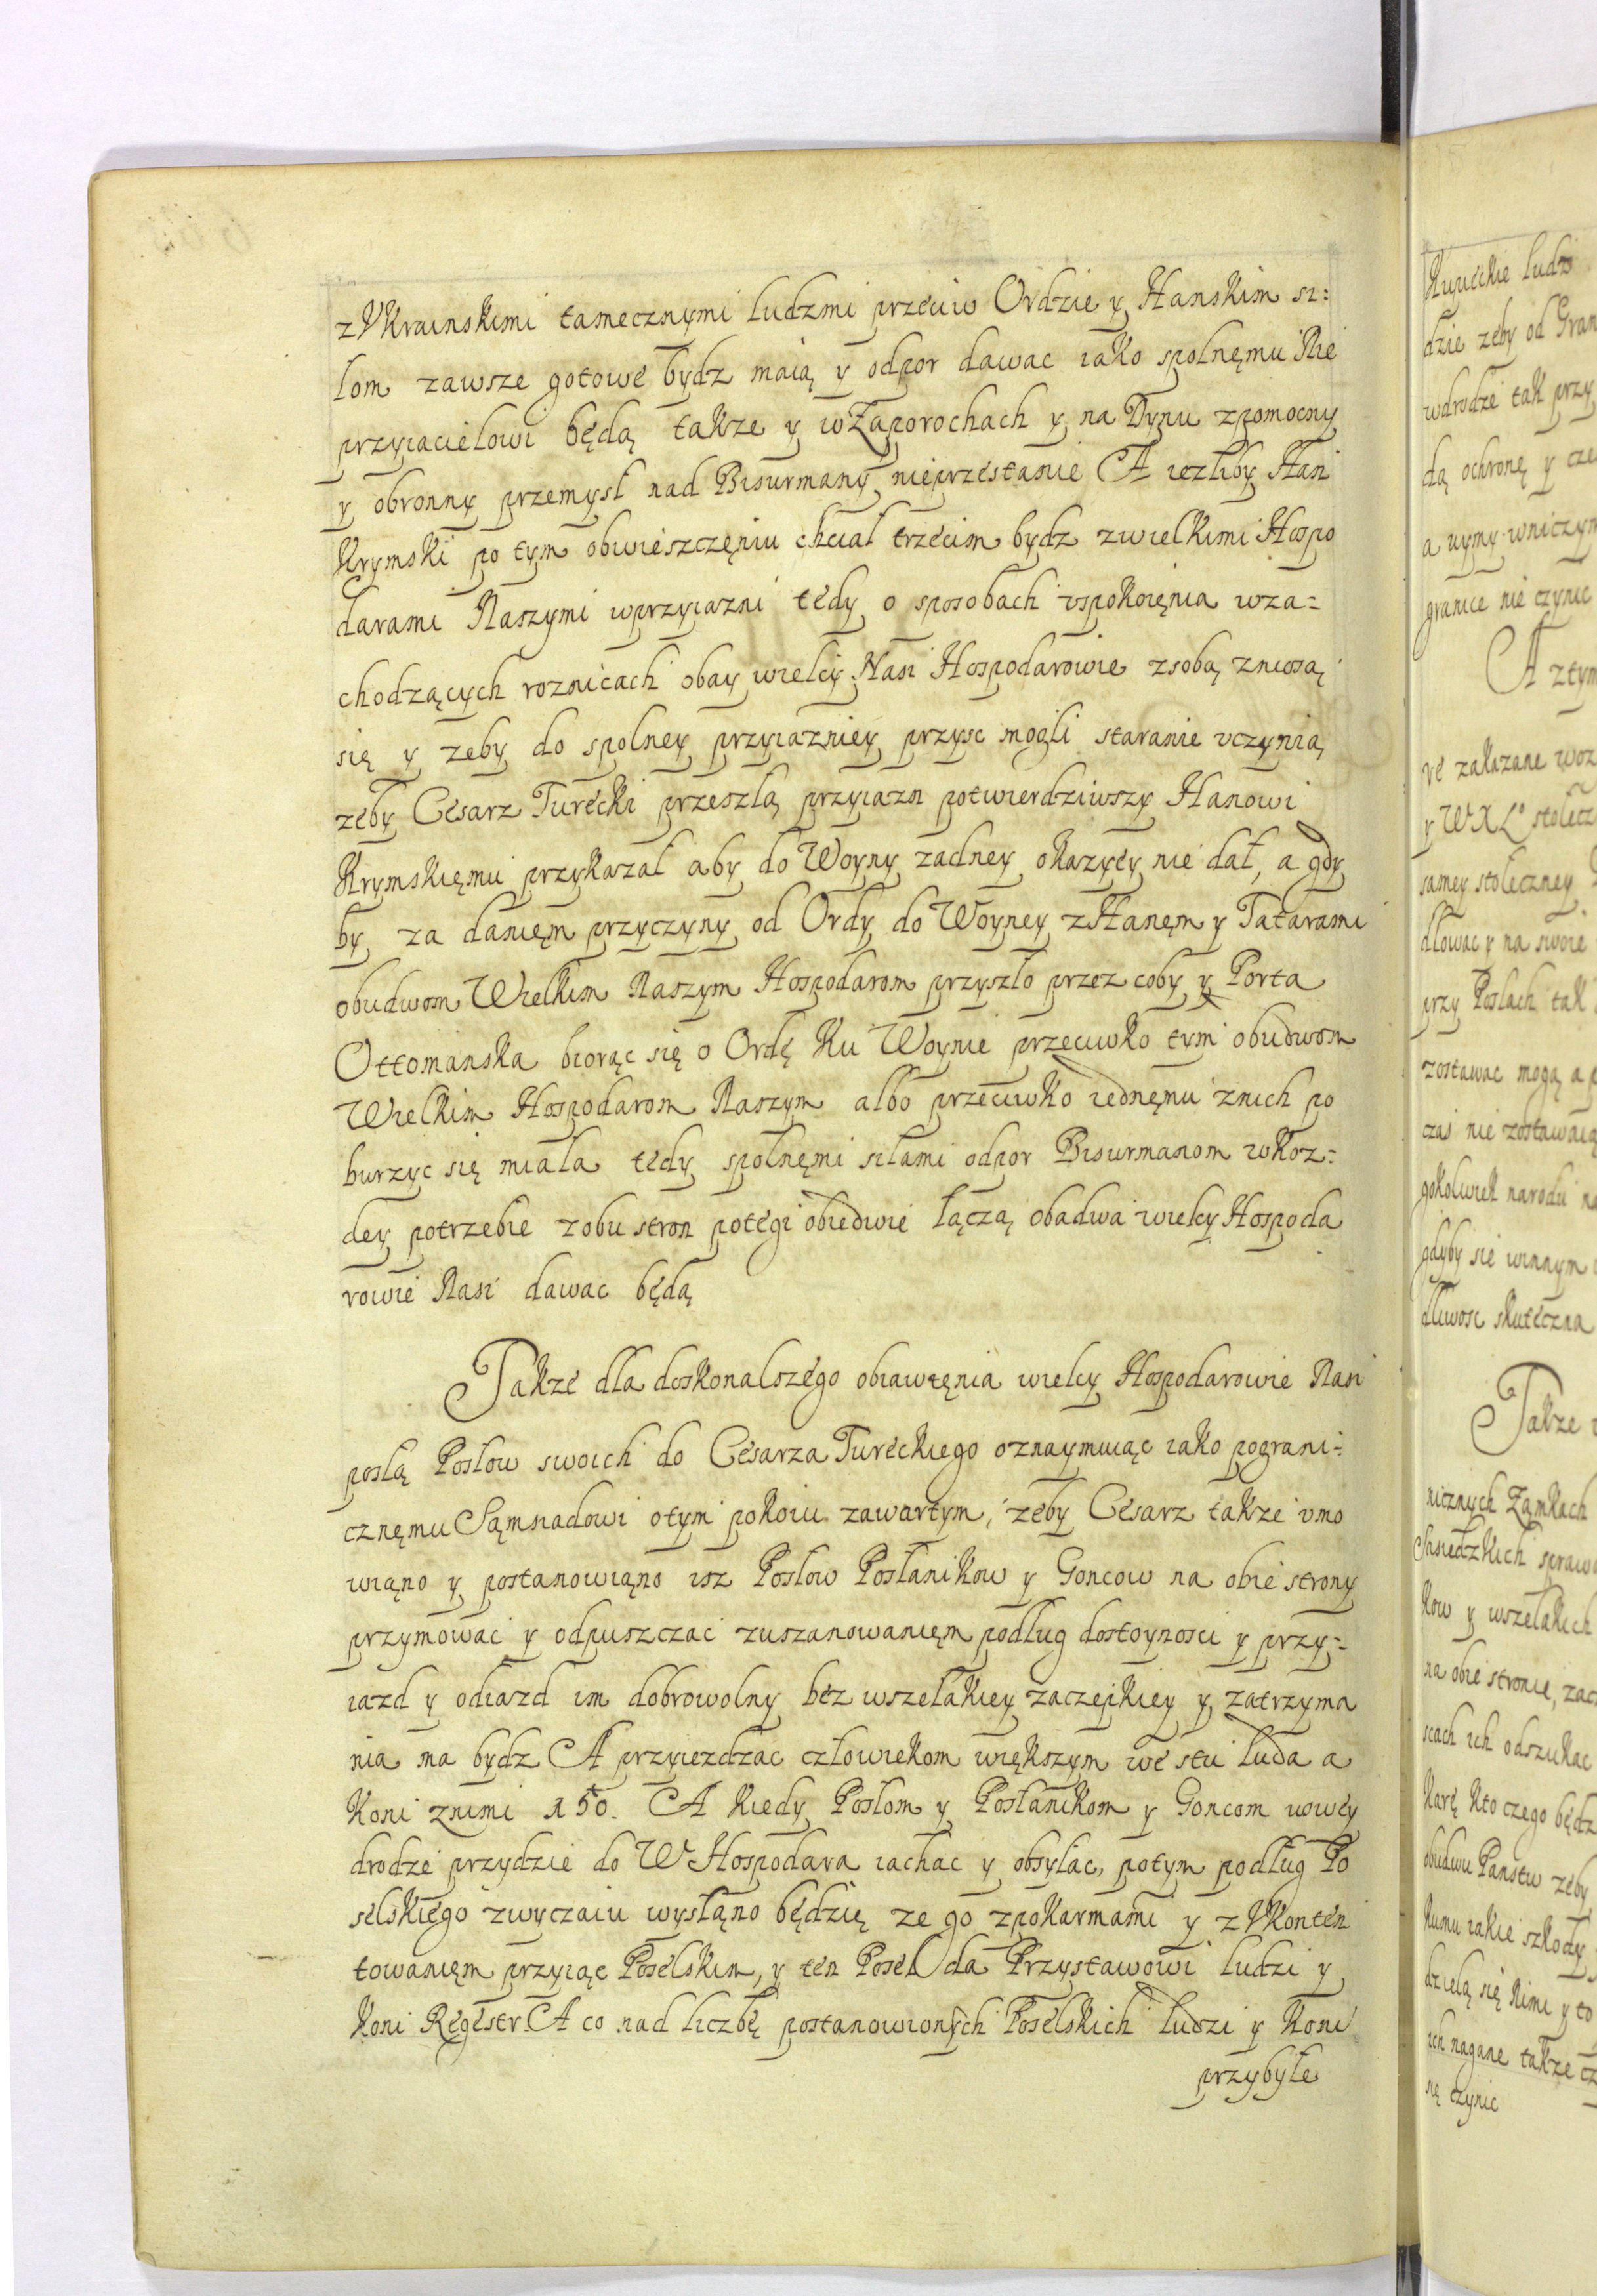 z Vkrainskimi tamecznymi ludzmi przeciw Ordzie y Hanskim si:
lom zawsze gotowe bydz maią y odpor dawac iako spolnęmu Nie
przyiacielowi będą takze y w Zaporochach y na Dynu z pomocny
y obronny przemysl nad Bisurmany nieprzestanie A iezliby Han
Krymski po tym obwieszczęniu chciał trzecim bydz z wielkimi Hospo
darami Naszymi w przyiazni tedy o sposobach vspokoięnia wza=
chodzących roznicach obay wielcy Nasi Hospodarowie z sobą zniosą
się y zeby do spolney przyiazniey przysc mogli staranie vczynią
zeby Cesarz Turecki przeszlą przyiazn potwierdziwszy Hanowi
Krymskięmu przykazał aby do Woyny zadney okazyey nie dał, a gdy
by za danięm przyczyny od Ordy do Woyney z Hanęm y Tatarami
obudwom Wielkim Naszym Hospodarom przyszło przez coby y Porta
Ottomanska biorąc się o Ordę Ku Woynie przeciwko tym obudwom
Wielkim Hospodarom Naszym albo przeciwko iednęmu z nich po
burzyc się miała tedy spolnęmi siłami odpor Bisurmanom w koz=
dey potrzebie z obu stron potęgi obiedwie łączą obadwa wielcy Hospoda
rowie Nasi dawac będą
Takze dla doskonalszego obiawięnia wielcy Hospodarowie Nasi
poslą Poslow swoich do Cesarza Tureckiego oznaymuiąc iako pograni=
cznęmu Sąmsiadowi o tym pokoiu zawartym, zeby Cesarz takze vmo
wiąno y postanowiąno isz Poslow Poslanikow y Goncow na obie strony
przymowac y odpuszczac z uszanowanięm podlug dostoynosci y przy=
iazd y odiazd im dobrowolny bez wszelakiey zaczepkiey y zatrzyma
nia ma bydz A przyiezdzac człowiekom większym we stu luda a
Koni z nimi 150. A Kiedy Poslom y Poslanikom y Goncom w swey
drodze przydzie do W Hospodara iachac y obsylac, potym podlug Po
selskiego zwyczaiu wysłąno będzię ze go z pokarmami y z Vkonten
towanięm przyiąc Poselskim, y ten Posel da Przystawowi ludzi y
Koni Regestr. A co nad liczbę postanowionych Poselskich ludzi y Koni
przybyłe
Kupieckie ludzi
dzie zeby od Gran
w drodze tak przy
dą ochronę y cze
a uymy w niczym
granice nie czynic
A z tym
re zakazane
y WXLo stolecz
samey stoleczney
dlowac y na swoie
przy Poslach tak
zostawac mogą a p
czas nie zostawaią
gokolwiek narodu na
gdyby się w innym
dliwosc skuteczna
Takze
nicznych Zamkach
Sąsiedzkich spraw
kow y wszelakich
na obie stronie, zac
scach ich odszukac
karę kto czego będz
obudwu Panstw zeby
kumu iakie szkody
dzielą się nimi y to
ich nagane takze cz
nę czynic